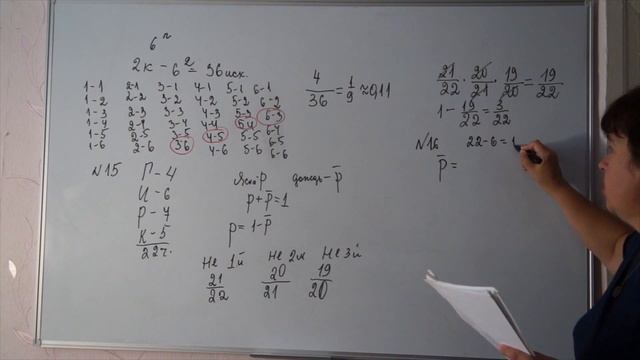 6ⁿ
2к - 6² = 36 исх.
1-1 2-1 3-1 4-1 5-1 6-1
1-2 2-2 3-2 4-2 5-2 6-2
1-3 2-3 3-3 4-3 5-3 6-3
1-4 2-4 3-4 4-4 5-4 6-4
1-5 2-5 3-5 4-5 5-5 6-5
1-6 2-6 3-6 4-6 5-6 6-6
4/36 = 1/9 ≈ 0,11
N15
П - 4
И - 6
Р - 7
К - 5
22 ч.
Ясно-p дождь - p̅
p + p̅ = 1
p = 1 - p̅
Не 1й Не 2й Не 3й
21/22 20/21 19/20
21/22 · 20/21 · 19/20 = 19/22
1 - 19/22 = 3/22
N16 22-6=1
p̅ =